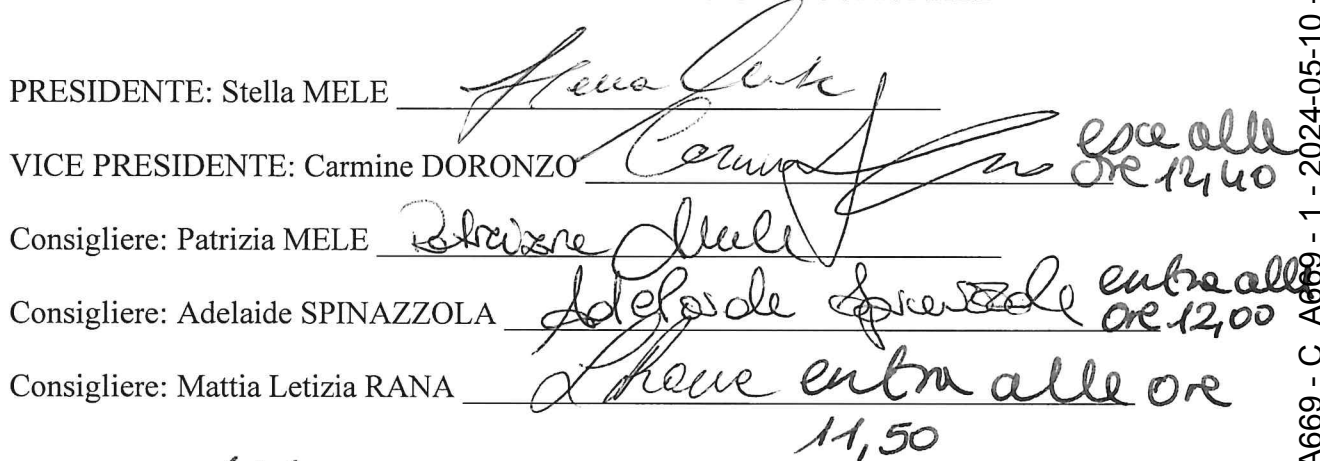 PRESIDENTE: Stella MELE
VICE PRESIDENTE: Carmine DORONZO esce alle
ore 12,40
Consigliere: Patrizia MELE
Consigliere: Adelaide SPINAZZOLA Adelaide Spinazzola entra alle
ore 12,00
Consigliere: Mattia Letizia RANA entra alle ore
11,50
A669 - C_A669 - 1 - 2024-05-10 -